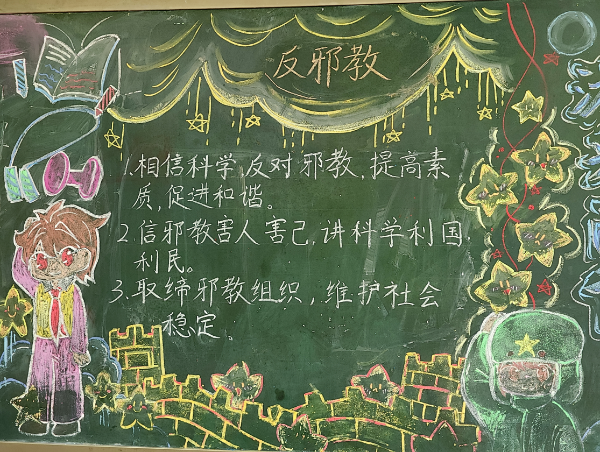 反邪教
1.相信科学,反对邪教,提高素
质,促进和谐。
2.信邪教害人害己,讲科学利国
利民。
3.取缔邪教组织,维护社会
稳定。